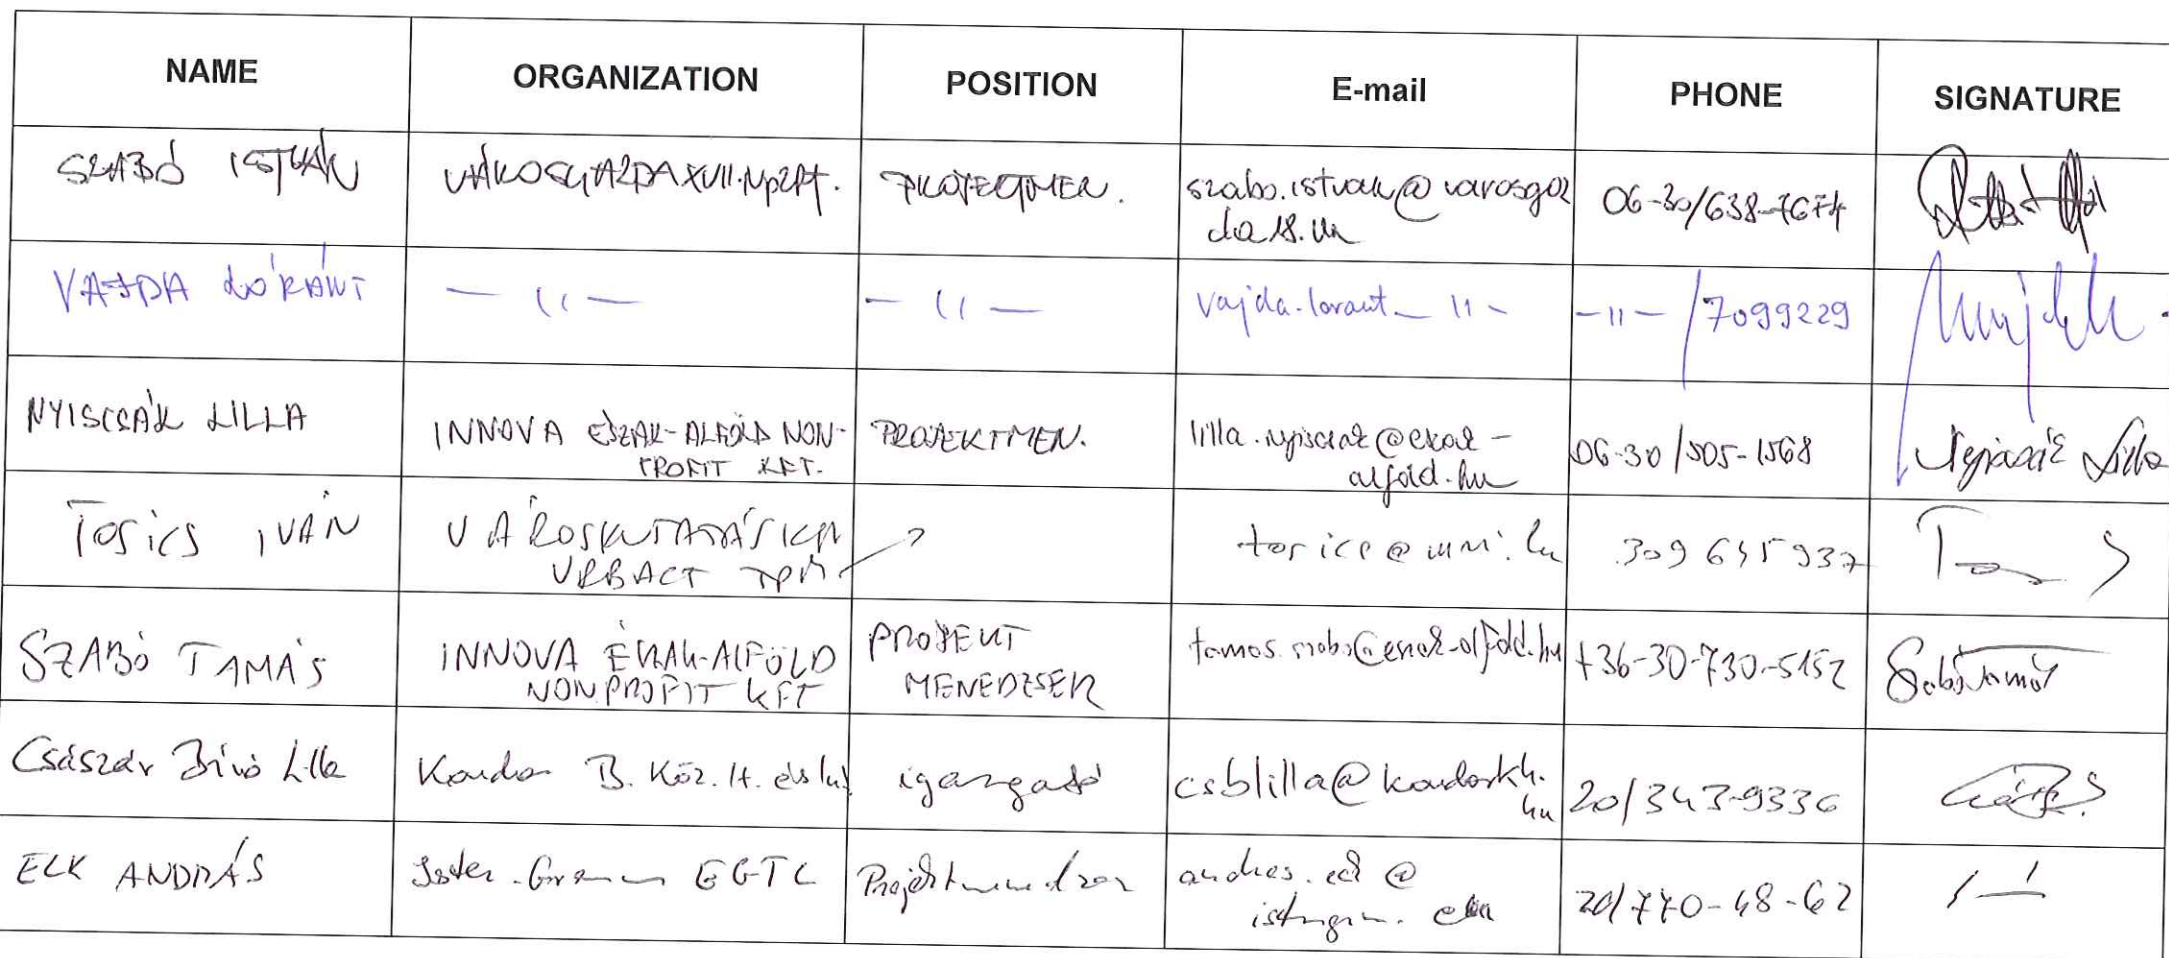 NAME ORGANIZATION POSITION E-mail PHONE SIGNATURE
SZABÓ ISTVÁN VÁROSGAZDA XVIII. NpZRt. PROJECTMEN. szabo.istvan@varosgaz
da18.hu 06-30/638-7674
VAJDA LÓRÁNT — 11 — — 11 — vajda.lorant — 11 - - 11 - /7099229
NYISCSÁK LILLA INNOVA ÉSZAK-ALFÖLD NON-
PROFIT KFT. PROJEKTMEN. lilla.nyiscsak@eszak-
alfold.hu 06-30/505-1568 Nyiscsák Lilla
TOSICS IVÁN VÁROSKUTATÁS KFT
URBACT TPM tosics@mri.hu 309635937
SZABÓ TAMÁS INNOVA ÉSZAK-ALFÖLD
NONPROFIT KFT PROJEKT
MENEDZSER tamas.szabo@eszak-alfold.hu +36-30-730-5152 Szabó Tamás
Császár Bíró Lilla B. Köz. H. igazgató csblilla@kondorkh.
hu 20/343-9336
ECK ANDRÁS Ister-Granum EGTC Projektmenedzser andras.eck@
20/770-48-62